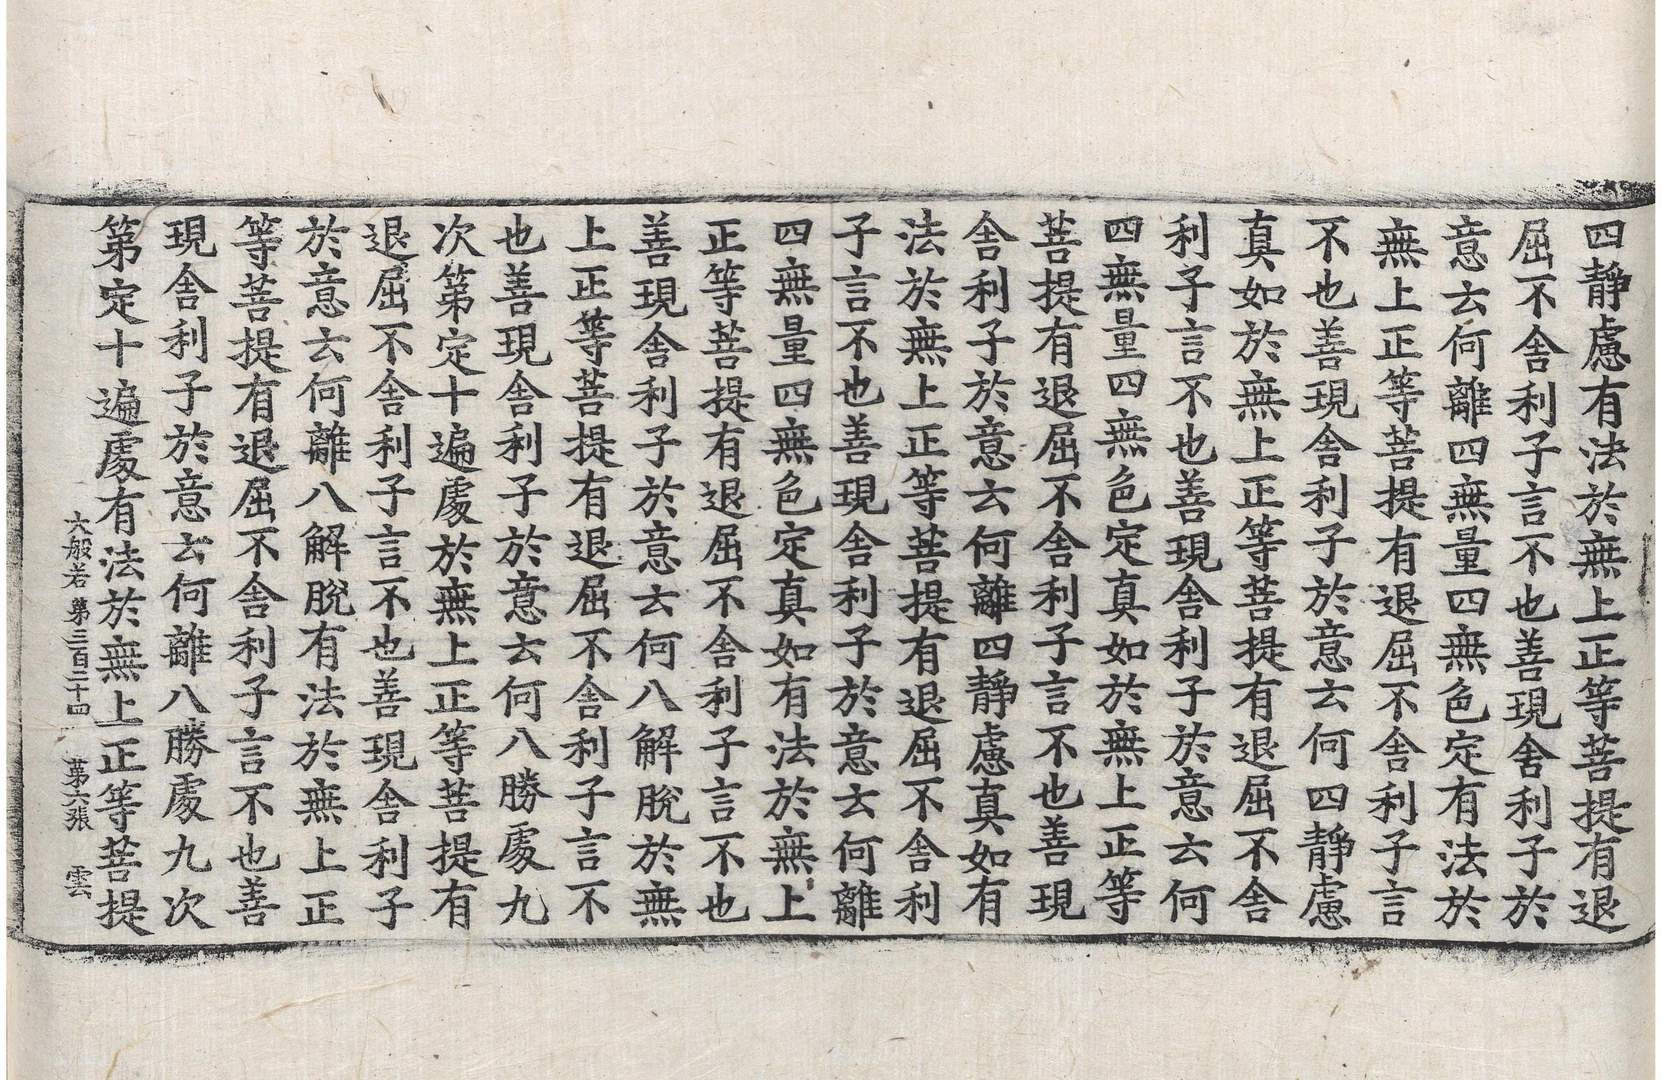 四靜慮有法於無上正等菩提有退
屈不舍利子言不也善現舍利子於
意云何離四無量四無色定有法於
無上正等菩提有退屈不舍利子言
不也善現舍利子於意云何四靜慮
真如於無上正等菩提有退屈不舍
利子言不也善現舍利子於意云何
四無量四無色定真如於無上正等
菩提有退屈不舍利子言不也善現
舍利子於意云何離四靜慮真如有
法於無上正等菩提有退屈不舍利
子言不也善現舍利子於意云何離
四無量四無色定真如有法於無上
正等菩提有退屈不舍利子言不也
善現舍利子於意云何八解脫於無
上正等菩提有退屈不舍利子言不
也善現舍利子於意云何八勝處九
次第定十遍處於無上正等菩提有
退屈不舍利子言不也善現舍利子
於意云何離八解脫有法於無上正
等菩提有退屈不舍利子言不也善
現舍利子於意云何離八勝處九次
第定十遍處有法於無上正等菩提
大般若第三百二十四 第六張 雲